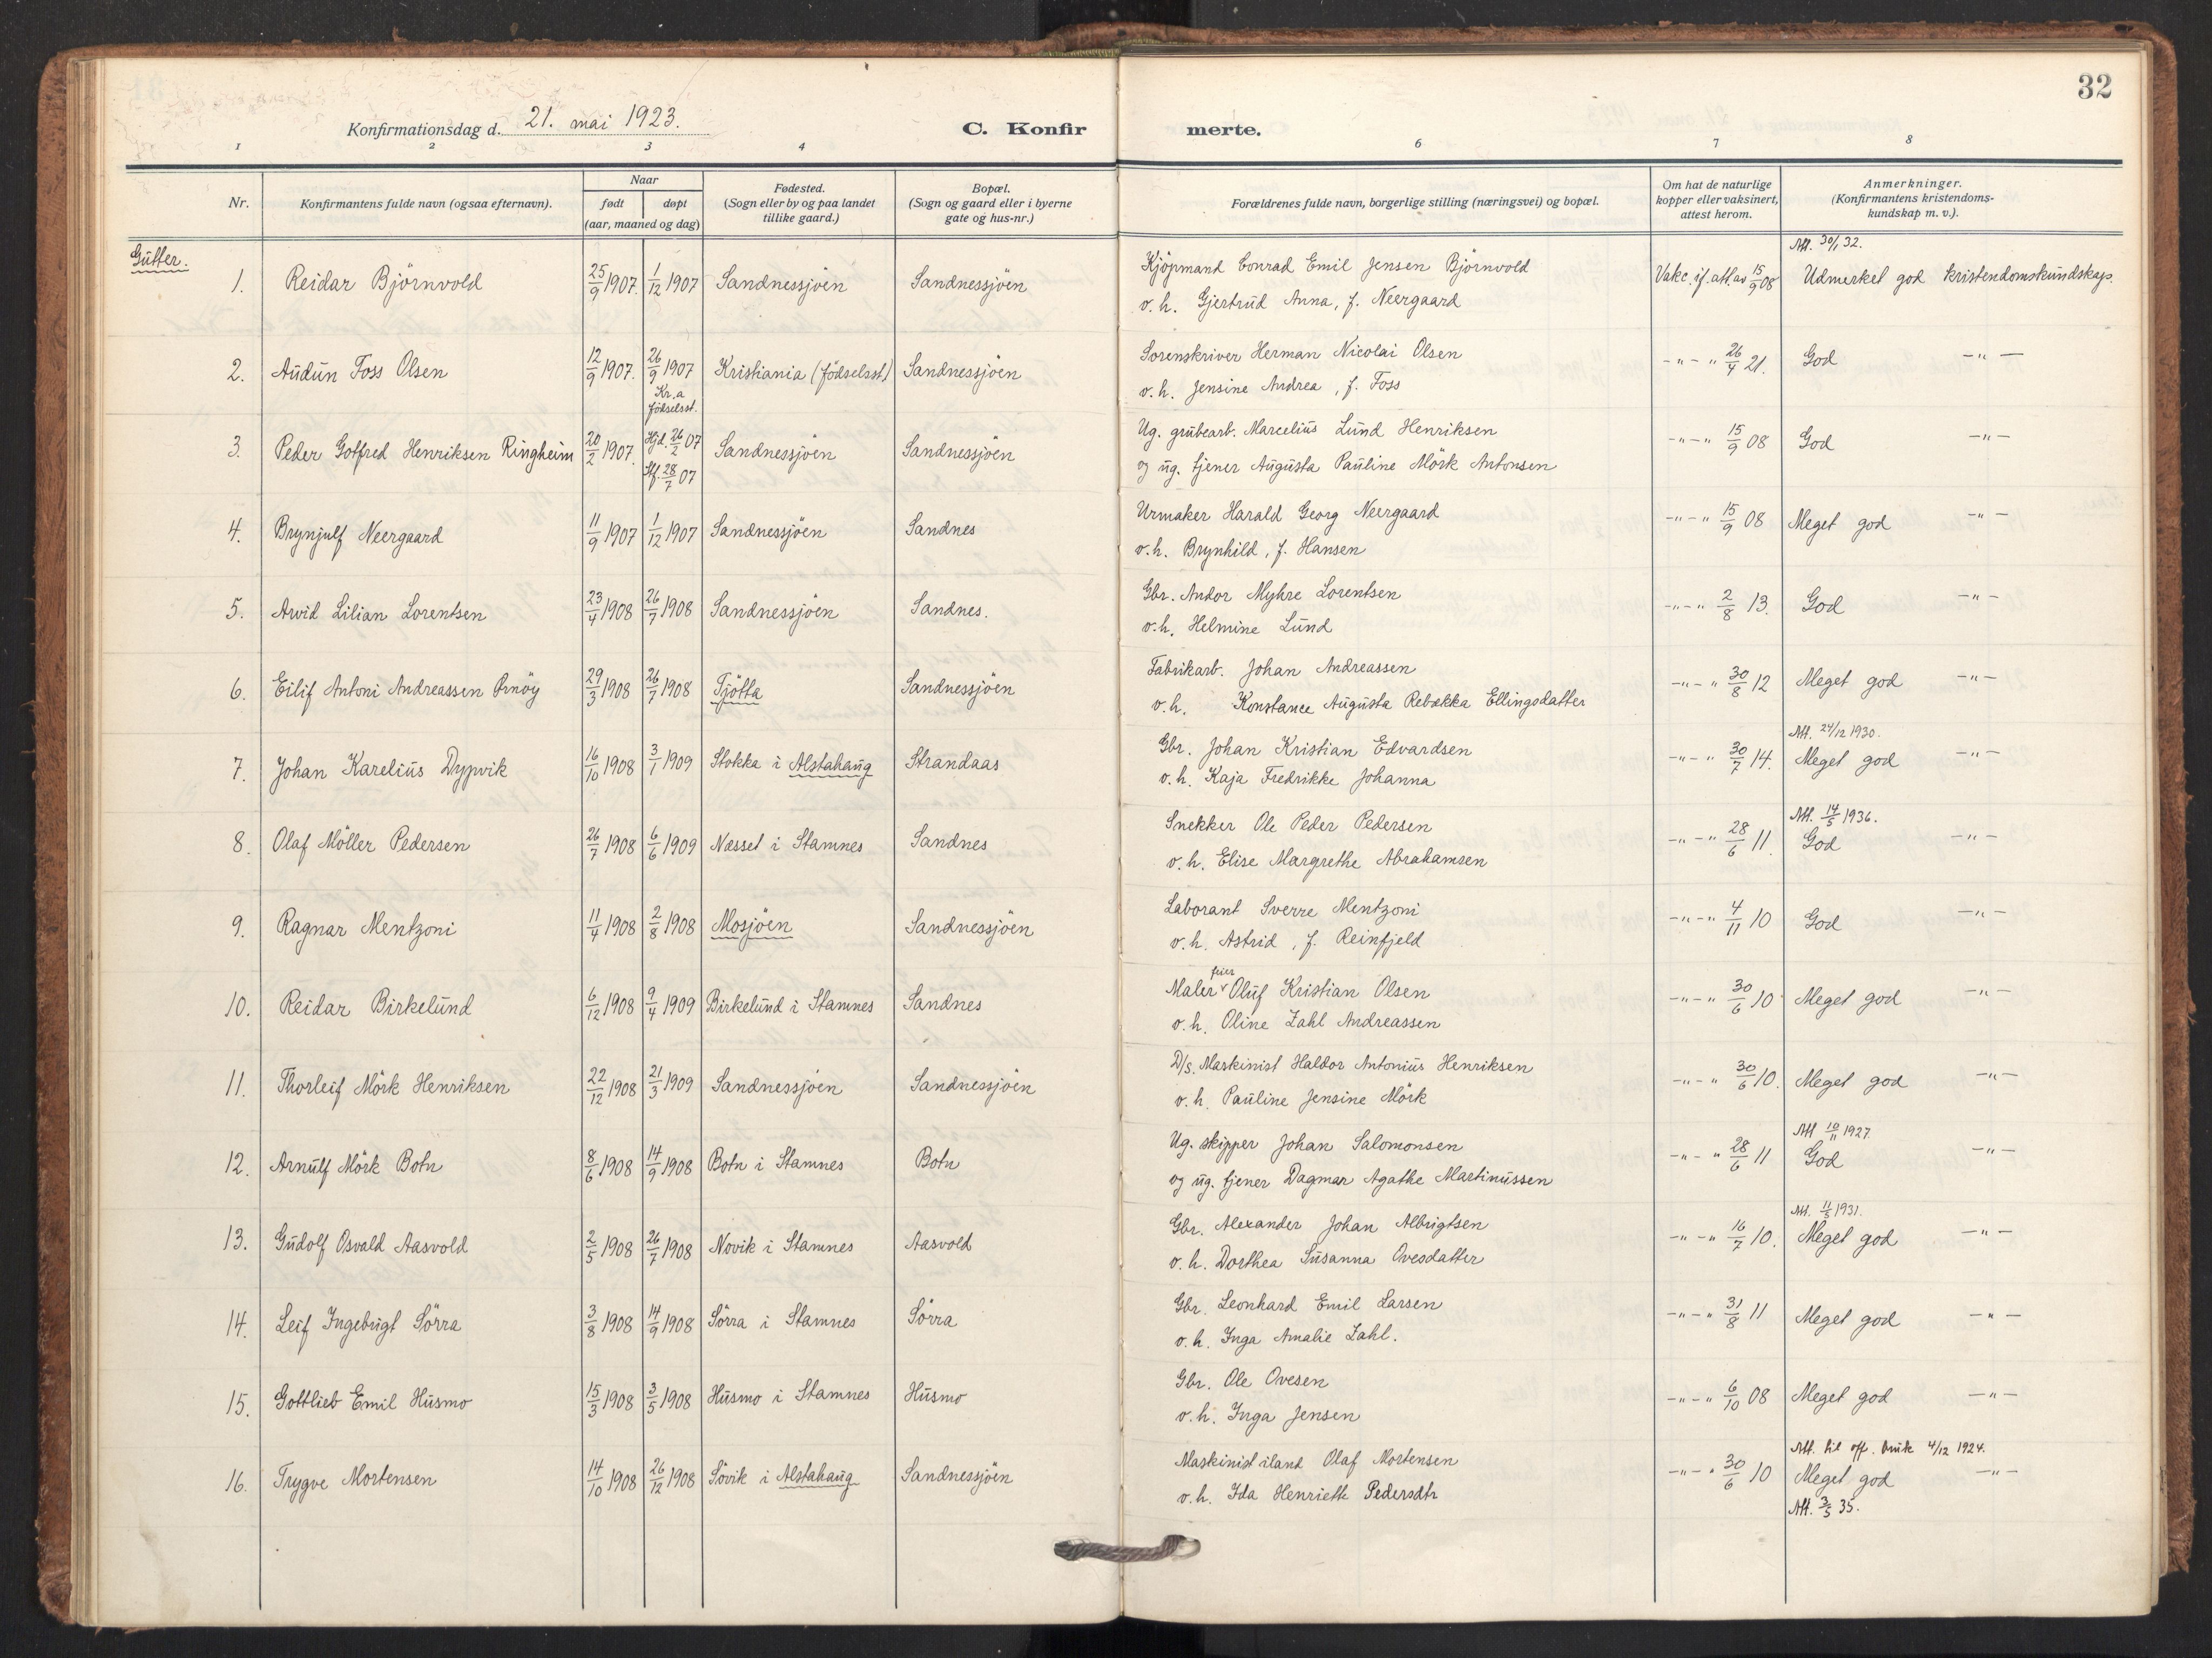 32
Konfirmationsdag d. 21. mai 1923. C. Konfirmerte.
1 2 3 4 6 7 8
Nr. Konfirmantens fulde navn (ogsaa efternavn). Naar født døpt (aar, maaned og dag) Fødested. (Sogn eller by og paa landet tillike gaard.) Bopæl. (Sogn og gaard eller i byerne gate og hus-nr.) Forældrenes fulde navn, borgerlige stilling (næringsvei) og bopæl. Om hat de naturlige kopper eller vaksinert, attest herom. Anmerkninger. (Konfirmantens kristendoms-kundskap m. v.).
Gutter.
Att. 30/1 32.
1. Reidar Björnvold 25/9 1907. 1/12 1907 Sandnessjöen Sandnessjöen Kjöpmand Conrad Emil Jensen Björnvold Vakc. if. att. av 15/9 08 Udmerket god kristendomskundskap.
v. h. Gjertrud Anna, f. Neergaard
2. Audun Foss Olsen 12/9 1907. 26/9 1907 Kr.a födselsst. Kristiania (födselsst.) Sandnessjöen Sorenskriver Herman Nicolai Olsen -"-" 26/4 21. God -"-
v. h. Jensine Andrea, f. Foss
3. Peder Gotfred Henriksen Ringheim 20/2 1907. Hjd. 26/2 07 Stf. 28/7 07 Sandnessjöen Sandnessjöen Ug. grubearb. Marcelius Lund Henriksen -"-" 15/9 08 God -"-
og ug. tjener Augusta Pauline Mörk Antonsen
4. Brynjulf Neergaard 11/9 1907 1/12 1907 Sandnessjöen Sandnes Urmaker Harald Georg Neergaard -"-" 15/9 08 Meget god -"-
v. h. Brynhild, f. Hansen
5. Arvid Lilian Lorentsen 23/4 1908 26/7 1908 Sandnessjöen Sandnes. Gbr. Andor Myhre Lorentsen -"-" 2/8 13. God -"-
v. h. Helmine Lund
6. Eilif Antoni Andreassen Ornöy 29/3 1908 26/7 1908 Tjötta Sandnessjöen Fabrikarb. Johan Andreassen -"-" 30/8 12 Meget god -"-
v. h. Konstance Augusta Rebekka Ellingsdatter
Att. 24/12 1930.
7. Johan Karelius Dypvik 16/10 1908 3/1 1909 Stokka i Alstahaug Strandaas Gbr. Johan Kristian Edvardsen -"-" 30/7 14. Meget god -"-
v. h. Kaja Fredrikke Johanna
Att. 14/5 1936.
8. Olaf Möller Pedersen 26/7 1908 6/6 1909 Nesset i Stamnes Sandnes Snekker Ole Peder Pedersen -"-" 28/6 11. God -"-
v. h. Elise Margrethe Abrahamsen
9. Ragnar Mentzoni 11/4 1908 2/8 1908 Mosjöen Sandnessjöen Laborant Sverre Mentzoni -"-" 4/11 10 God -"-
v. h. Astrid, f. Reinfjeld
10. Reidar Birkelund 6/12 1908 9/4 1909 Birkelund i Stamnes Sandnes Maler feier Oluf Kristian Olsen -"-" 30/6 10 Meget god -"-
v. h. Oline Zahl Andreassen
11. Thorleif Mörk Henriksen 22/12 1908 21/3 1909 Sandnessjöen Sandnessjöen D/s. Maskinist Haldor Antonius Henriksen -"-" 30/6 10. Meget god -"-
v. h. Pauline Jensine Mörk
Att 10/11 1927.
12. Arnulf Mörk Botn 8/6 1908 14/9 1908 Botn i Stamnes Botn Ug. skipper Johan Salomonsen -"-" 28/6 11 God -"-
og ug. tjener Dagmar Agathe Martinussen
Att. 11/5 1931.
13. Gudolf Osvald Aasvold 2/5 1908 26/7 1908 Novik i Stamnes Aasvold Gbr. Alexander Johan Albrigtsen -"-" 16/7 10. Meget god -"-
v. h. Dorthea Susanna Ovesdatter
14. Leif Ingebrigt Sörra 3/8 1908 14/9 1908 Sörra i Stamnes Sörra Gbr. Leonhard Emil Larsen -"-" 31/8 11 Meget god -"-
v. h. Inga Amalie Zahl.
15. Gottlieb Emil Husmo 15/3 1908 3/5 1908 Husmo i Stamnes Husmo Gbr. Ole Ovesen -"-" 6/10 08 Meget god -"-
v. h. Inga Jensen
Att. til off. bruk 4/12 1924.
16. Trygve Mortensen 14/10 1908 26/12 1908 Sövik i Alstahaug Sandnessjöen Maskinist iland Olaf Mortensen -"-" 30/6 10 Meget god -"-
v. h. Ida Henriette Pedersdtr Att. 3/5 35.